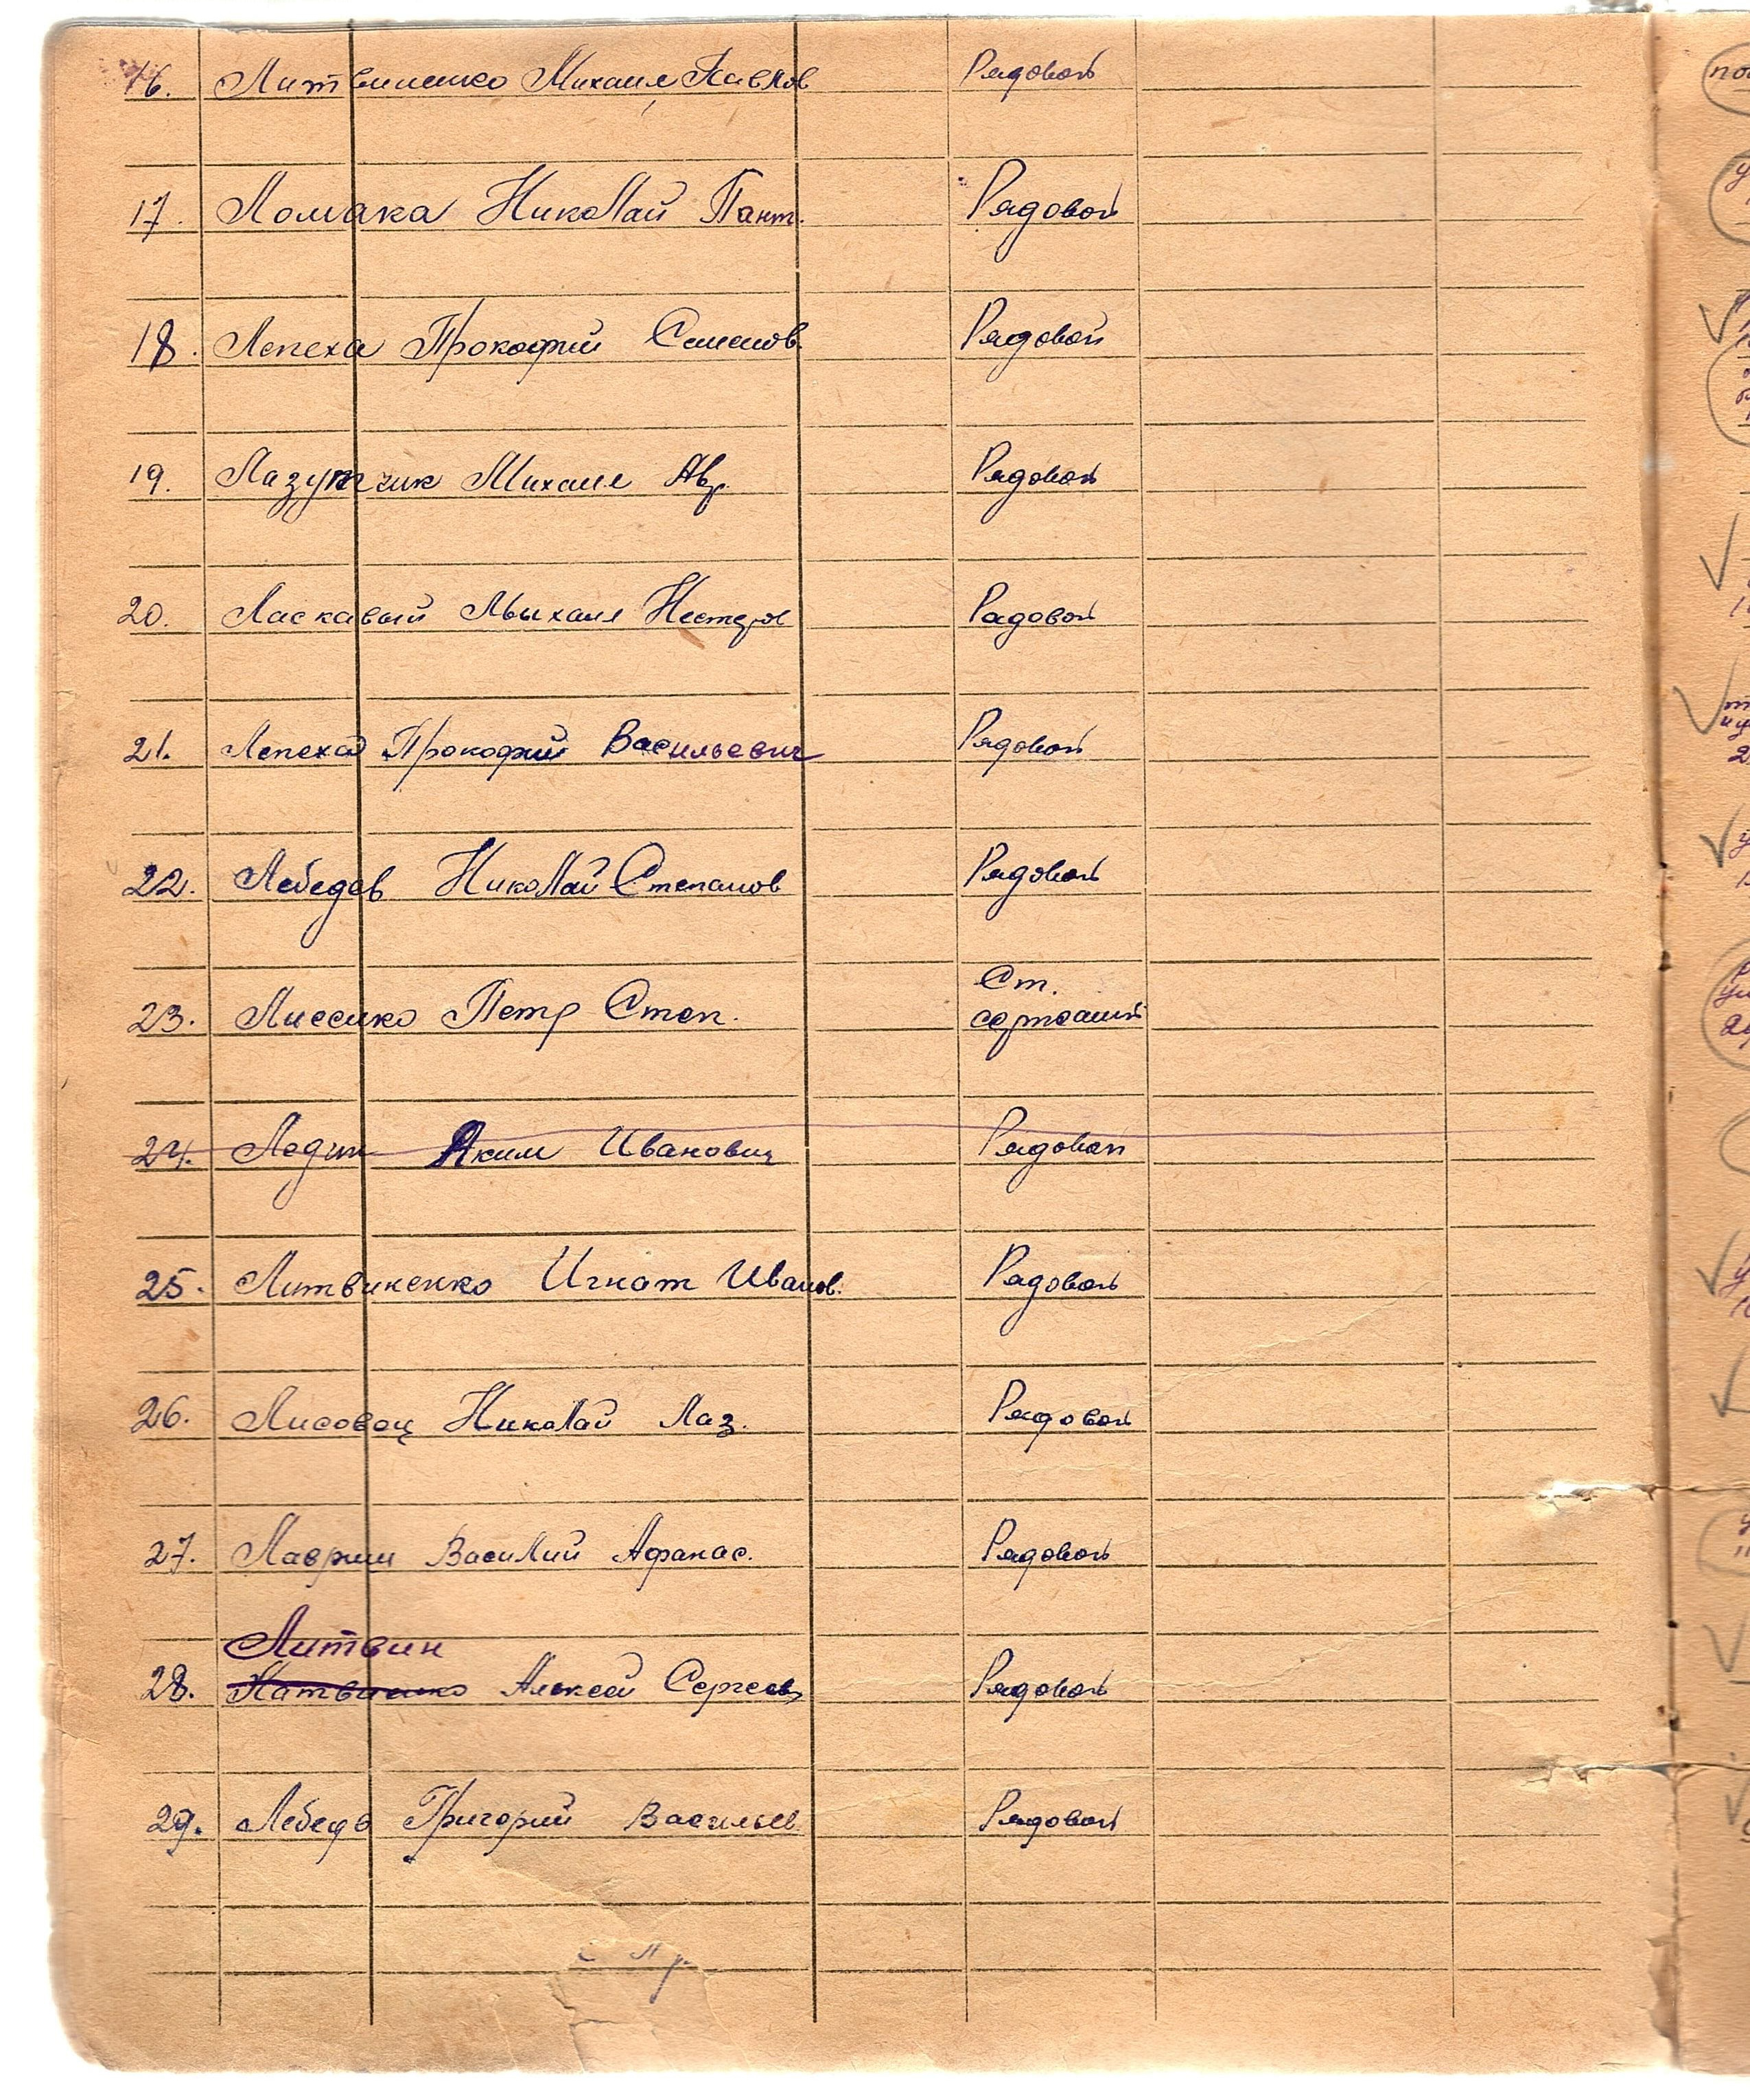 16. Литвиненко Михаил Павлов Рядовой
17. Ломака Николай Пант. Рядовой
18. Лепеха Прокофий Семенов. Рядовой
19. Лазутчик Михаил Ав. Рядовой
20. Ласкавый Мыхаил Нестеров Рядовой
21. Лепеха Прокофий Васильевич Рядовой
22. Лебедев Николай Степанов Рядовой
Ст.
23. Петр Степ. сержант
24. Ледин Аким Иванович Рядовой
25. Литвиненко Игнат Иванов. Рядовой
26. Лисовец Николай Лаз. Рядовой
27. Лаврин Василий Афанас. Рядовой
Литвин
28. Алексей Сергеев Рядовой
29. Лебедь Григорий Васильев. Рядовой